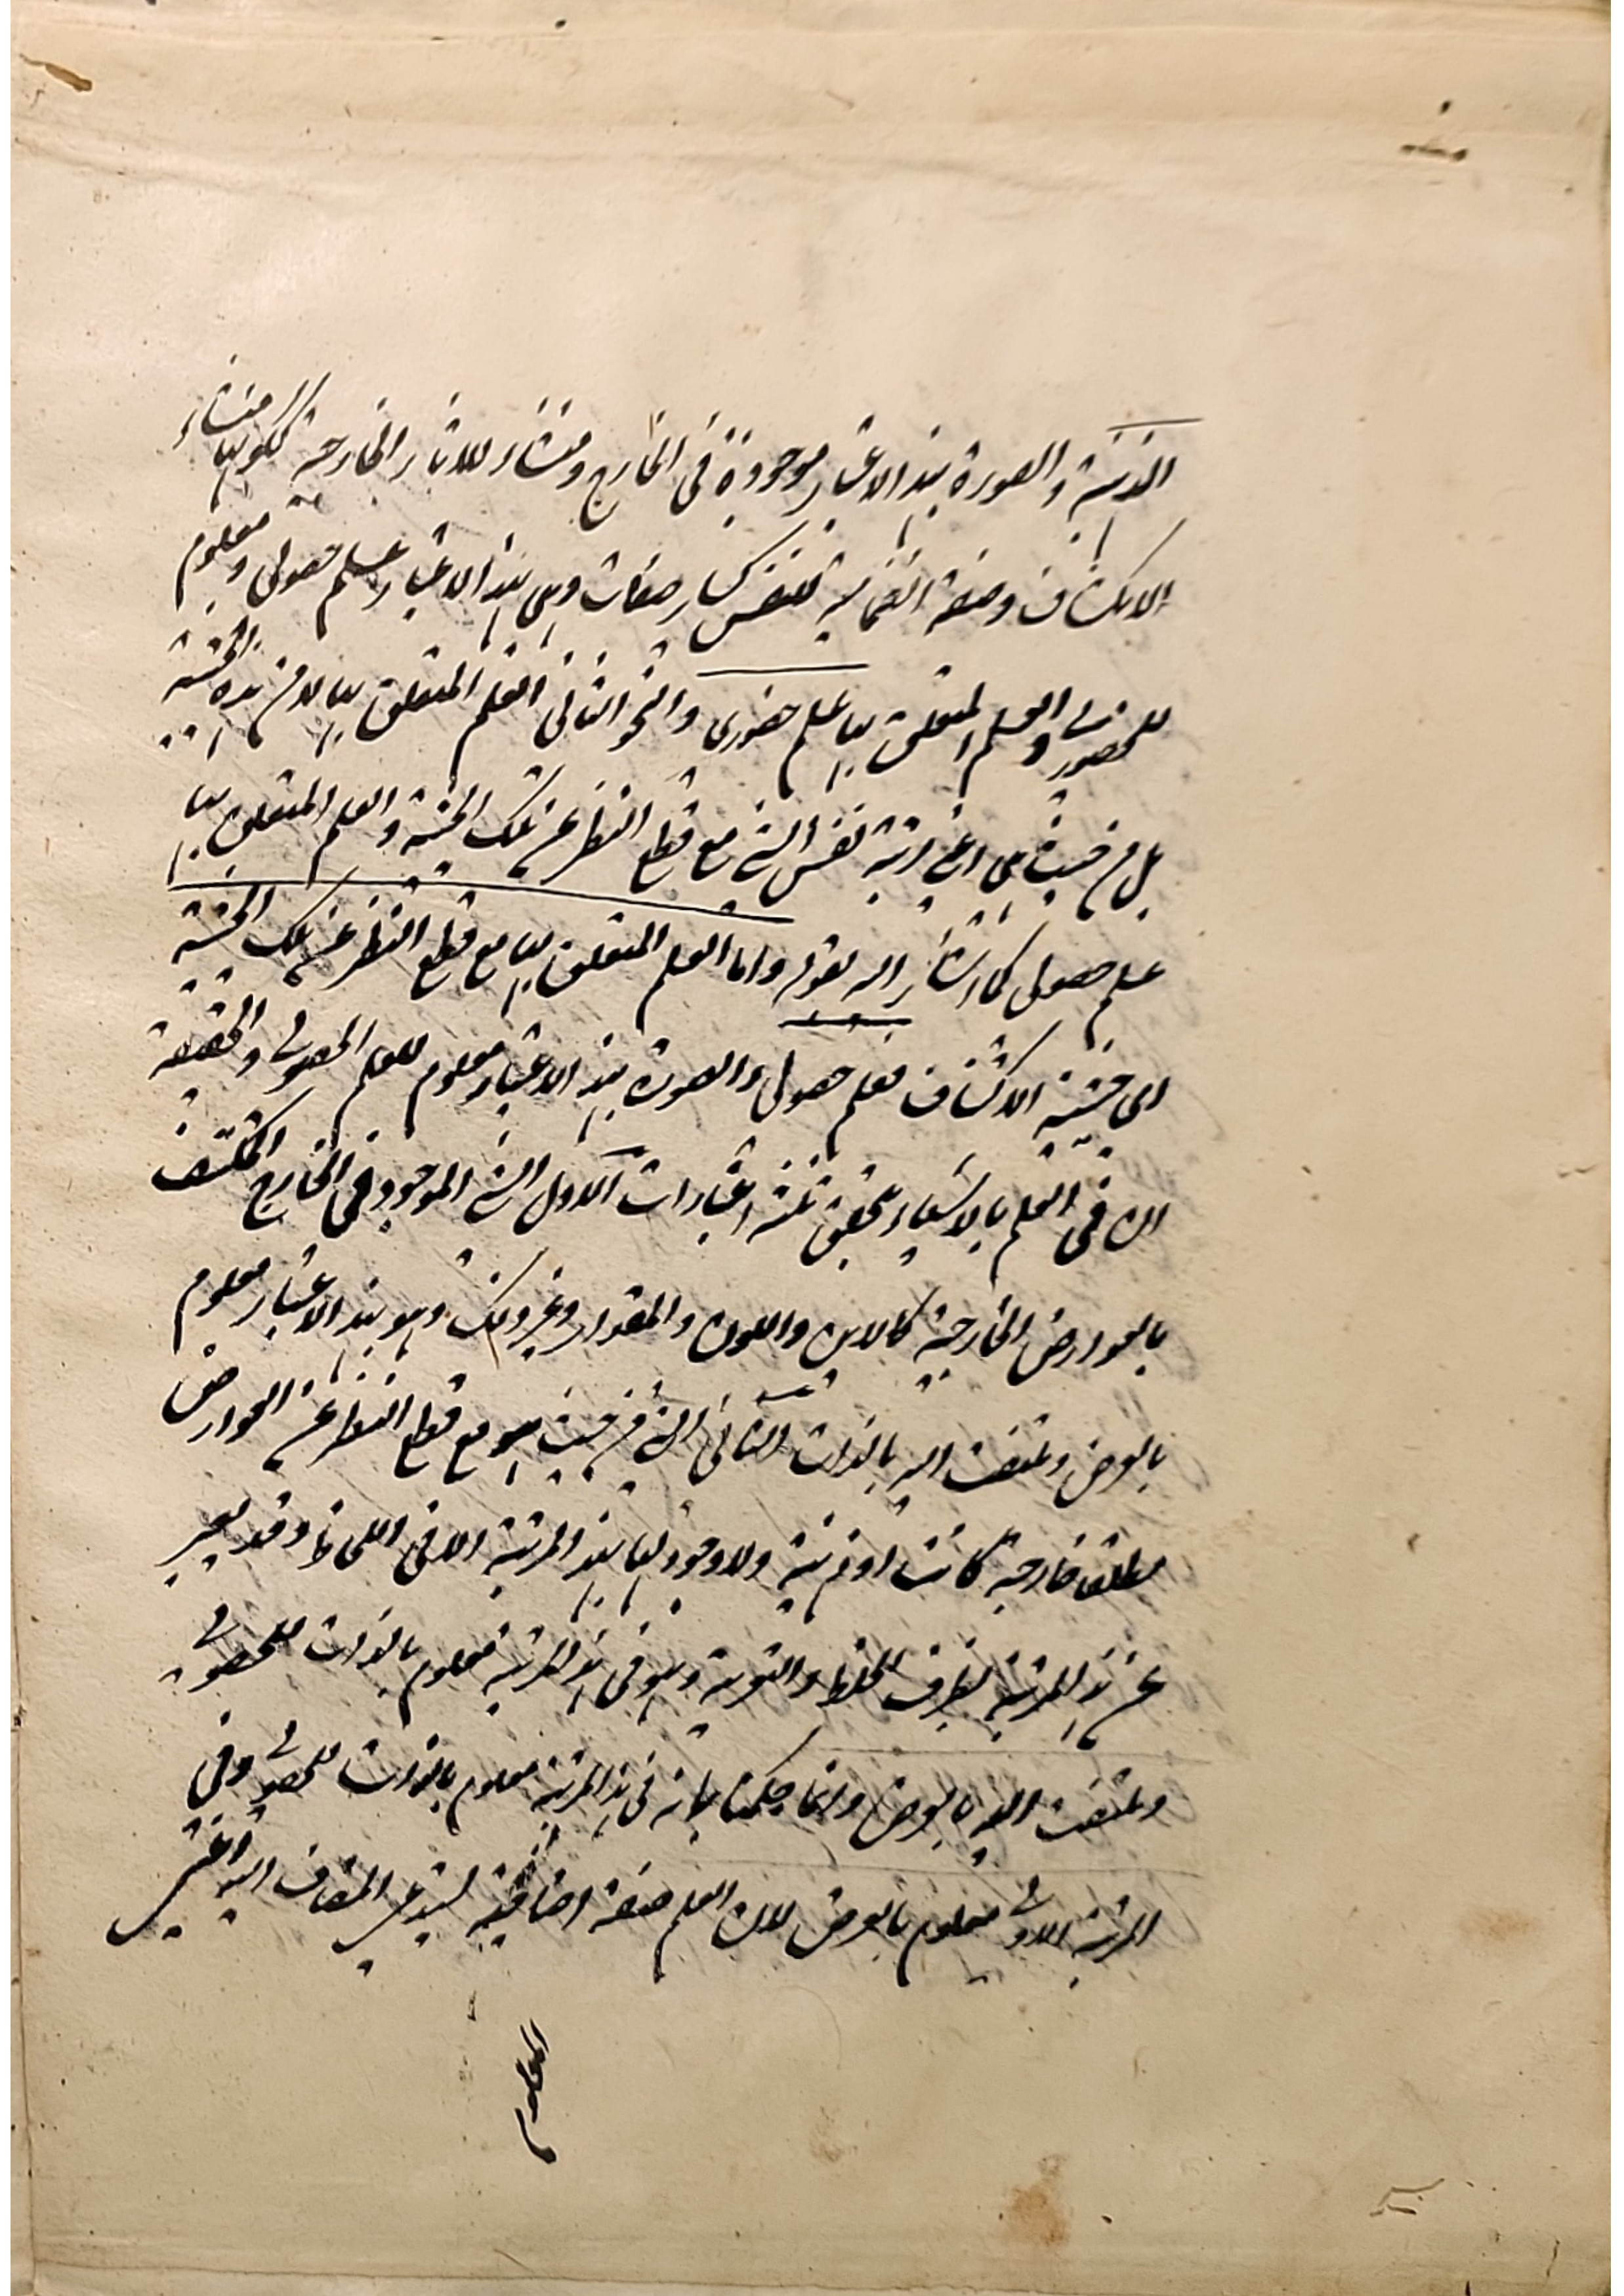 الذهنية والصورة بهذا الاعتبار موجودة فى الخارج ومنشاء للاثار الخارجية لكونها منشاء
الانكشاف وصفة انضمامية للنفس كسائر صفات وهى بهذا الاعتبار علم حصولى ومعلوم
للحضورى والعلم المتعلق بها علم حضورى والنحو الثانى العلم المتعلق بها لا من هذه الحيثية
بل من حيث هى اعنى مرتبة نفس الشئ مع قطع النظر عن تلك الحيثية والعلم المتعلق بها
علم حصولى كما اشار اليه بقوله واما العلم المتعلق بها مع قطع النظر عن تلك الحيثية
اى حيثية الاكتناف فعلم حصولى والصورة بهذا الاعتبار معلوم للعلم الحصولى والحقيقة
ان فى العلم بالاشياء يتحقق ثلثه اعتبارات الاول الشئ الموجود فى الخارج المكتنف
بالعوارض الخارجية كالاين واللون والمقدار وغير ذلك وهو بهذا الاعتبار معلوم
بالعرض وملتفت اليه بالذات الثانى الشئ من حيث هو مع قطع النظر عن العوارض
مطلقا خارجية كانت او ذهنية ولا وجود لها بهذا المرتبة الا فى اللحاظ وقد يعبر
عن هذا المرتبة بظرف الخلط والتعرية وهو فى هذا المرتبة معلوم بالذات للحصولى
وملتفت اليه بالعرض وانما حكمنا بانه فى هذا المرتبة معلوم بالذات للحصولى وفى
المرتبة الاولى معلوم بالعرض لان العلم صفة اضافية يستدعى المضاف اليه اعنى
المعلوم